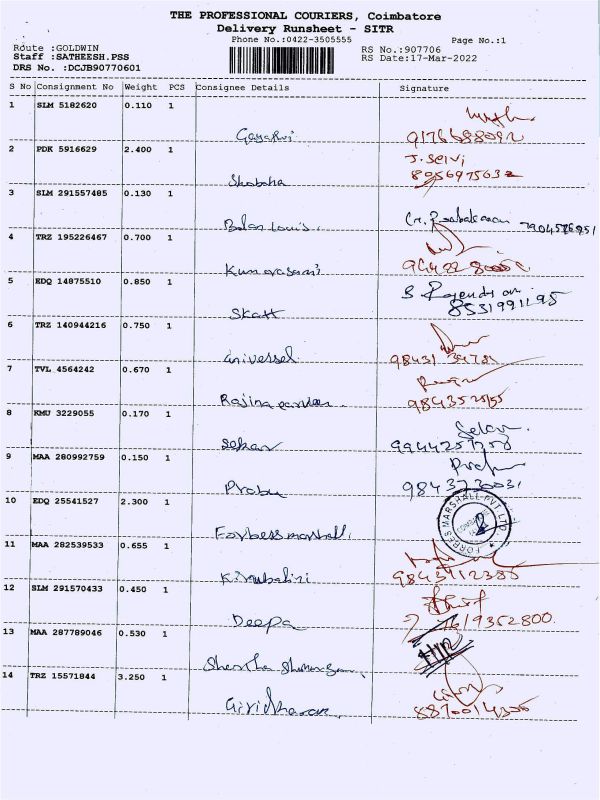 THE PROFESSIONAL COURIERS, Coimbatore
Delivery Runsheet - SITR
Phone No.:0422-3505555
Page No.:1
Route :GOLDWIN
RS No.:907706
Staff :SATHEESH.PSS
RS Date:17-Mar-2022
DRS No. :DCJB90770601
S No Consignment No Weight PCS Consignee Details Signature
1 SLM 5182620 0.110 1
9176688092
2 PDK 5916629 2.400 1
J. Selvi
Shobaha 8056975632
3 SLM 291557485 0.130 1
Balan Louis. 7904576951
4 TRZ 195226467 0.700 1
Kumarasami
5 EDQ 14875510 0.850 1
B. Rajendran
Skatt 8531991195
6 TRZ 140944216 0.750 1
7 TVL 4564242 0.670 1
8 KMU 3229055 0.170 1
Selar
Sekar 9944257258
9 MAA 280992759 0.150 1
Prabu 9843770031
10 EDQ 25541527 2.300 1
FORBES MARSHALL PVT LTD.
Forbess marshall.
11 MAA 282539533 0.655 1
Kirubahini
12 SLM 291570433 0.450 1
Deepa 9352800.
13 MAA 287789046 0.530 1
14 TRZ 15571844 3.250 1
Giridharan. 8870014306